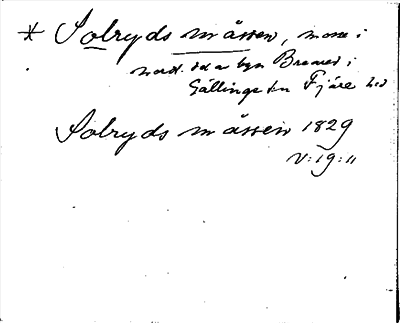 * Solryds måssen, mosse i
nord. del av byn Brearred i
Gällinge sn Fjäre hd
Solryds måssen 1829
V:19:11